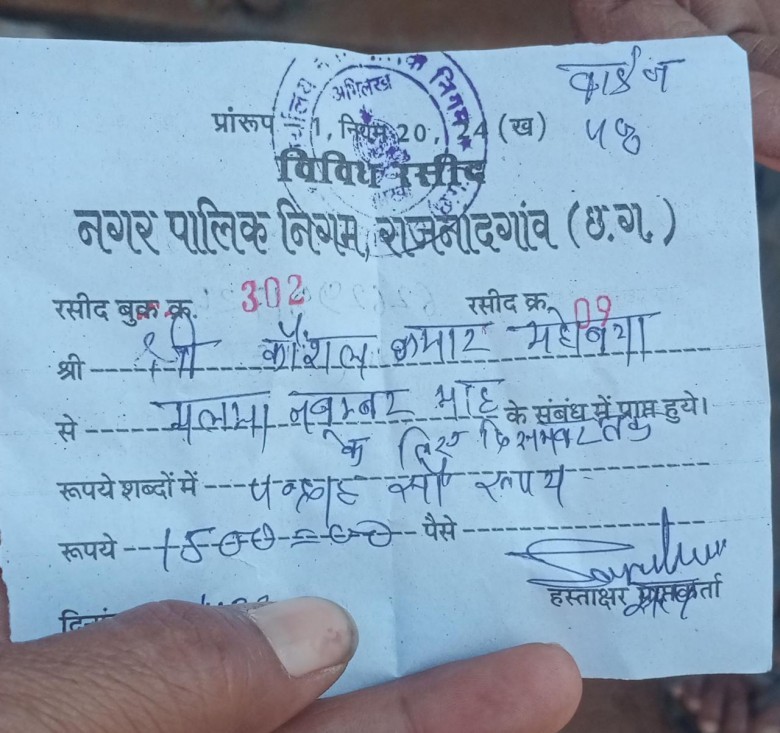 वार्ड नं
प्रांरूप - 1, नियम 20, 24 (ख)
अभिलेख
निगम
विविध रसीद
नगर पालिक निगम, राजनांदगांव (छ.ग.)
रसीद बुक क्र. 302 रसीद क्र. 09
श्री श्री कौशल कुमार
से मलमा नवम्बर माह के संबंध में प्राप्त हुये।
के लिए दिसम्बर तक
रूपये शब्दों में पन्द्रह सौ रूपय
रूपये 1500=00 पैसे
हस्ताक्षर प्राप्तकर्ता